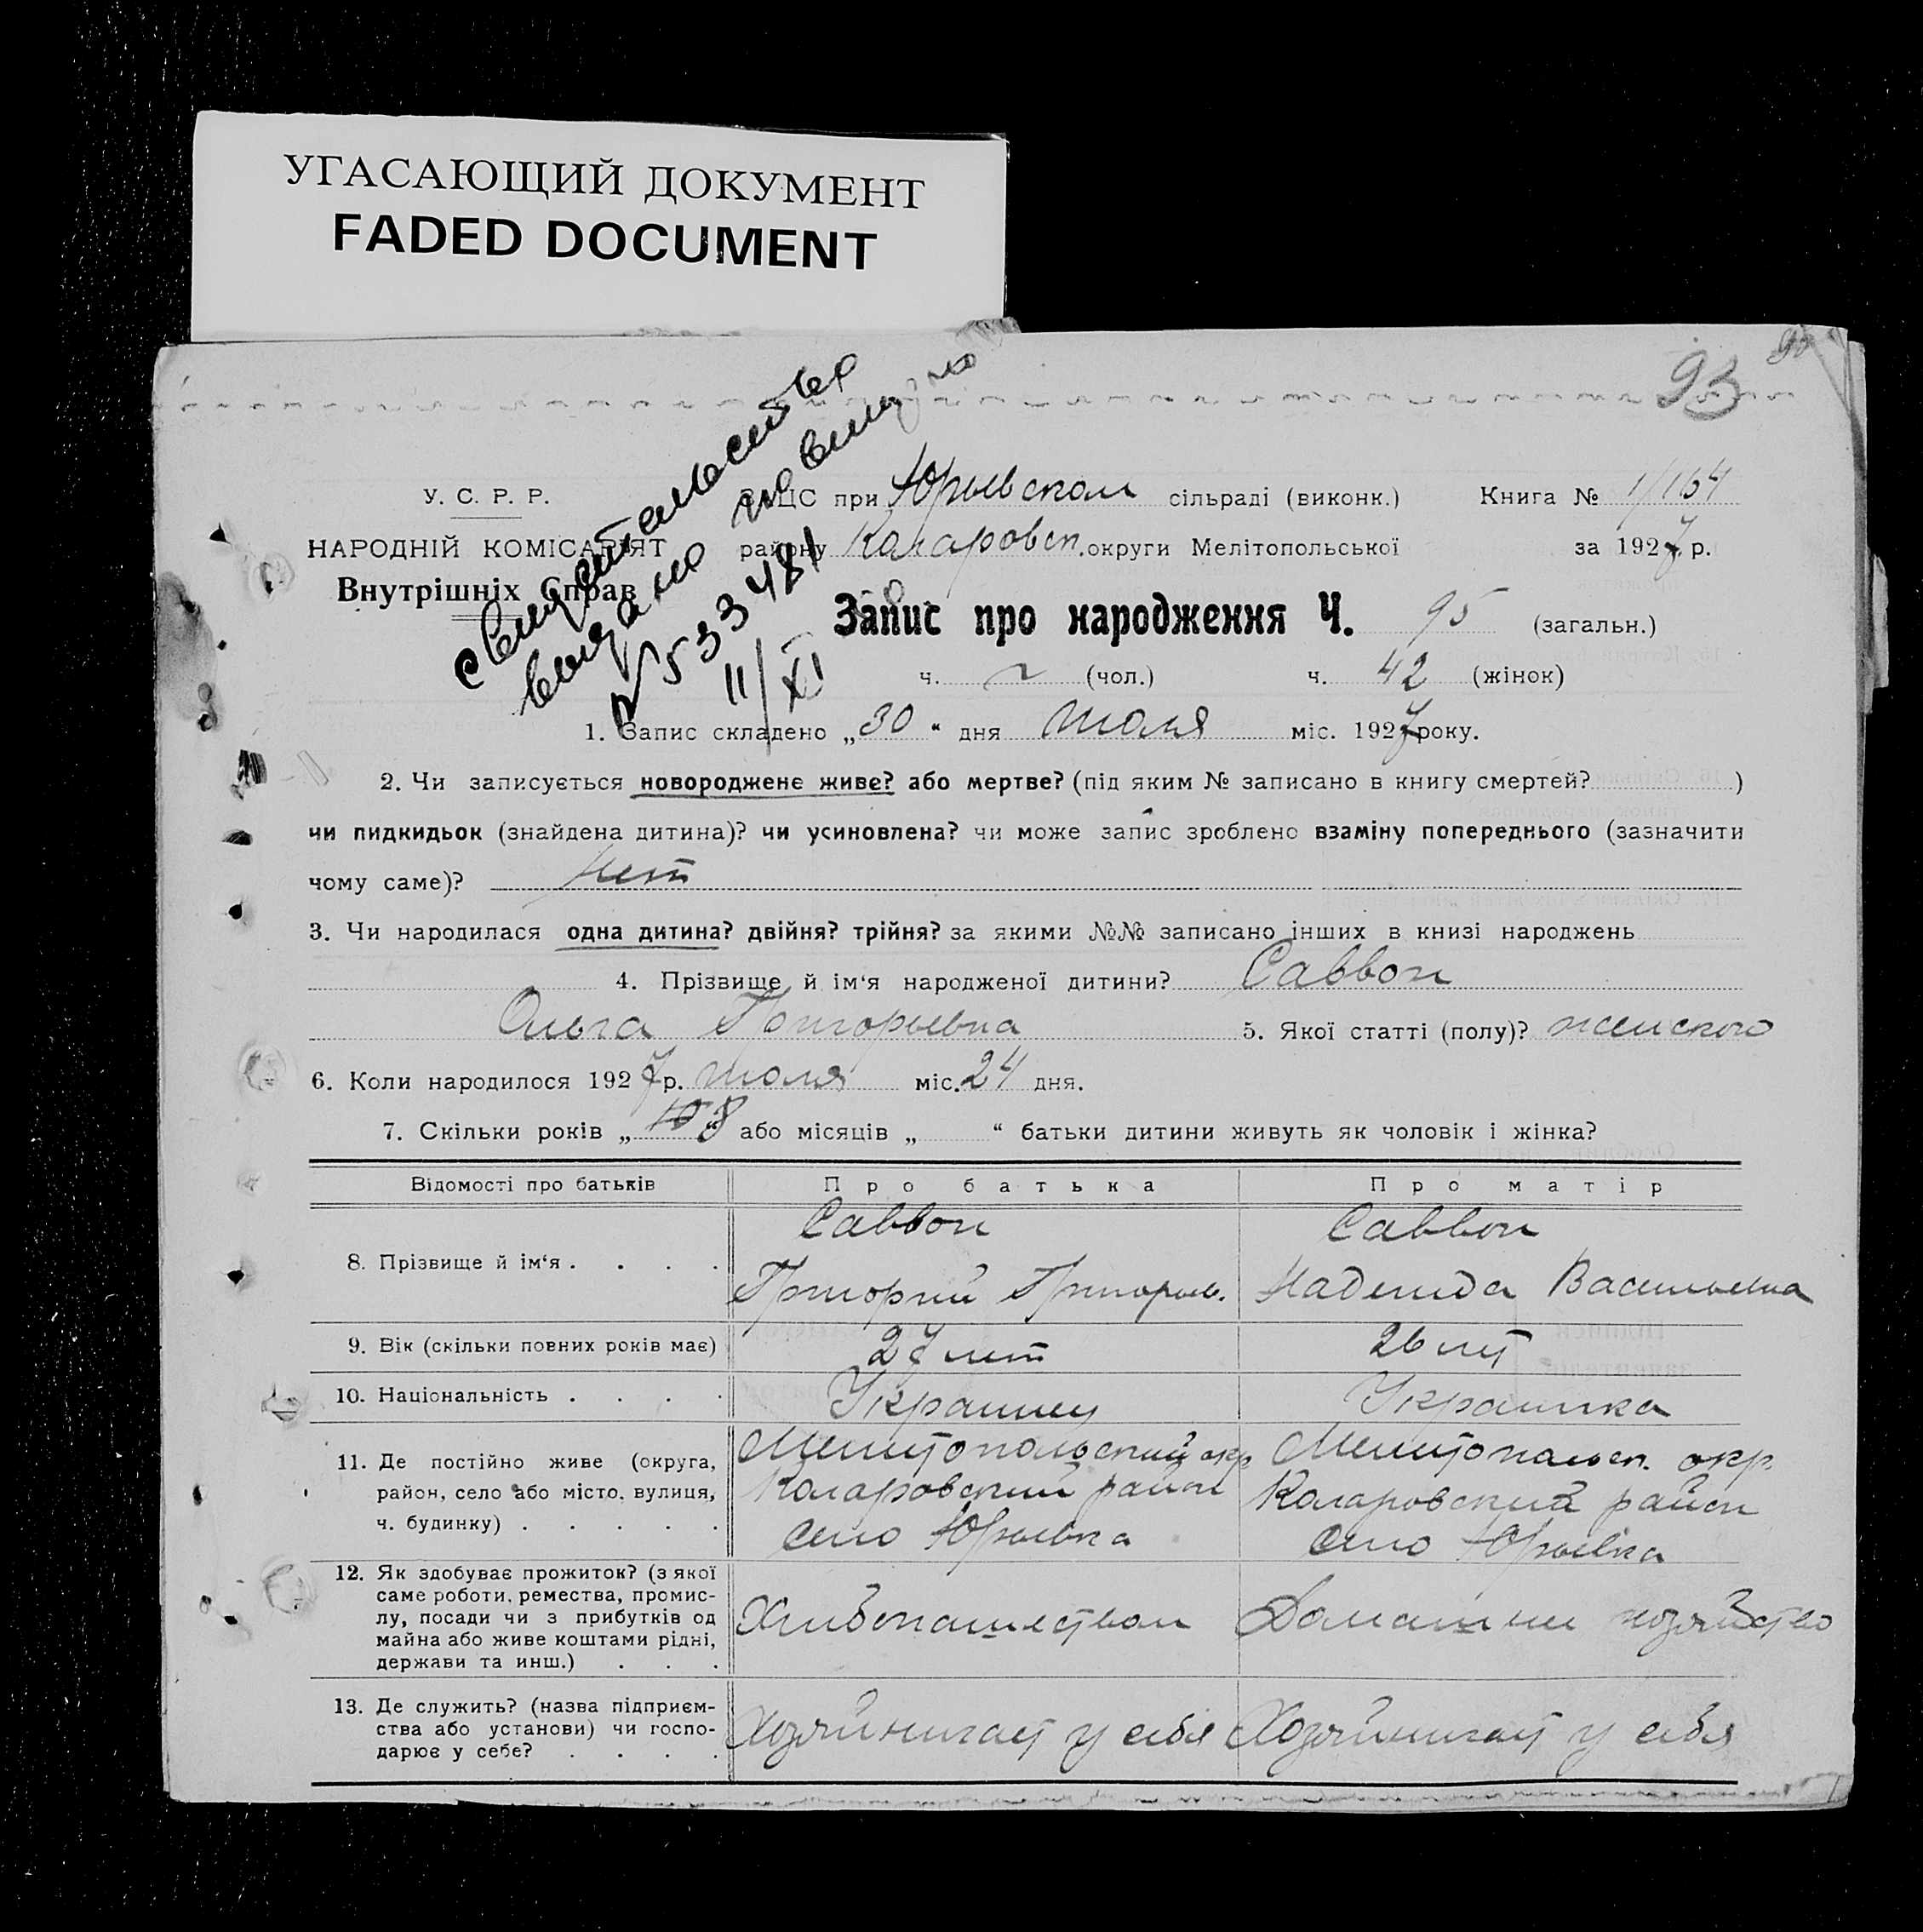 УГАСАЮЩИЙ ДОКУМЕНТ
FADED DOCUMENT
93
свидетельство
выдано
№ 533481
11/XI
У. С. Р. Р.
НАРОДНІЙ КОМІСАРІЯТ
Внутрішніх Справ
ЗАЦС при Юрьевском сільраді (виконк.) Книга № 1/164
району Коларовск. округи Мелітопольської за 1927 р.
Запис про народження Ч. 95 (загальн.)
ч. (чол.) ч. 42 (жінок)
1. Запис складено „30“ дня июля міс. 1927 року.
2. Чи записується новороджене живе? або мертве? (під яким № записано в книгу смертей? )
чи пидкидьок (знайдена дитина)? чи усиновлена? чи може запис зроблено взаміну попереднього (зазначити
чому саме)? нет
3. Чи народилася одна дитина? двійня? трійня? за якими №№ записано інших в книзі народжень
4. Прізвище й ім‘я народженої дитини? Саввон
Ольга Григорьевна 5. Якої статті (полу)? женского
6. Коли народилося 1927 р. июля міс. 24 дня.
7. Скільки років „ 8 або місяців „ “ батьки дитини живуть як чоловік і жінка?
Відомості про батьків Про батька Про матір
8. Прізвище й ім‘я . . . . Саввон Саввон
Григорий Григорьев. Надежда Васильевна
9. Вік (скільки повних років має) 27 лет 26 лет
10. Національність . . . . Украинец Украинка
11. Де постійно живе (округа, Мелитопольский окр. Мелитопольск. окр.
район, село або місто, вулиця, Коларовский район Коларовский район
ч. будинку) . . . . . село Юрьевка село Юрьевка
12. Як здобуває прожиток? (з якої
саме роботи, ремества, промис-
лу, посади чи з прибутків од Хлебопашеством Домашнее хозяйство
майна або живе коштами рідні,
держави та инш.) . . .
13. Де служить? (назва підприєм-
ства або установи) чи госпо- Хозяйничает у себя Хозяйничает у себя
дарює у себе? . . . .